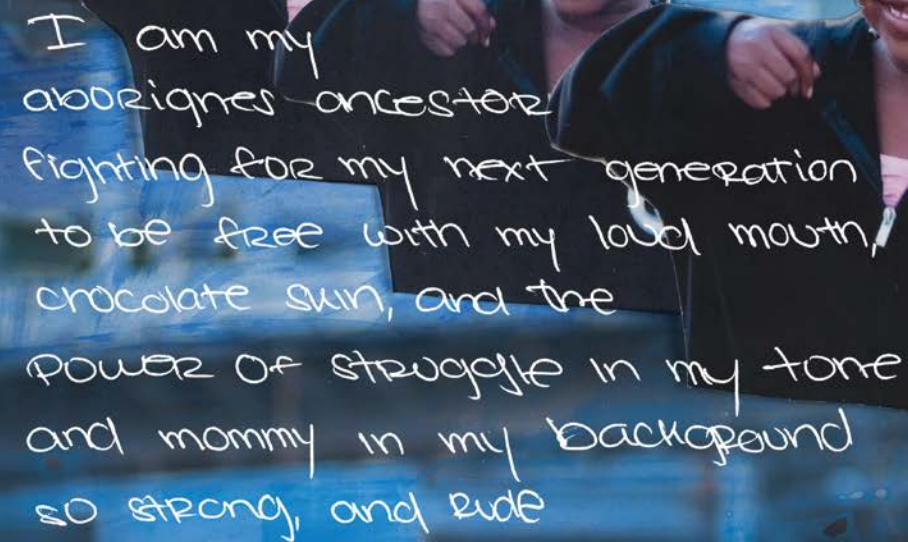 I am my
aborignes ancestor
fighting for my next generation
to be free with my loud mouth,
chocolate skin, and the
power of struggle in my tone
and mommy in my background
so strong, and rude